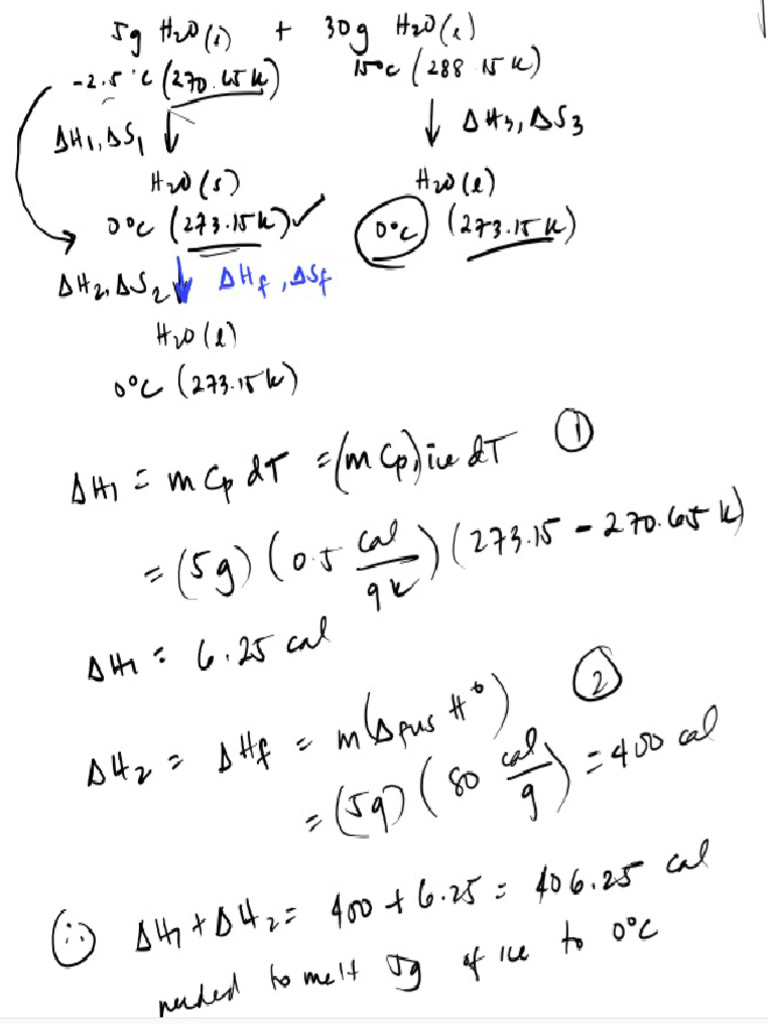 5g H2O(s) + 30g H2O(l)
-2.5°C (270.65K) 15°C (288 15K)
ΔH1, ΔS1 ↓ ↓ ΔH3, ΔS3
H2O(s) H2O(l)
0°C (273.15K) ✓ 0°C (273.15K)
ΔH2, ΔS2 ↓ ΔHf, ΔSf
H2O(l)
0°C (273.15K)
ΔH1 = m Cp dT = (m Cp) ice dT ①
= (5g) (0.5 cal/gK) (273.15 - 270.65K)
ΔH1 = 6.25 cal
ΔH2 = ΔHf = m(Δfus H°) ②
= (5g) (80 cal/g) = 400 cal
∴ ΔH1 + ΔH2 = 400 + 6.25 = 406.25 cal
needed to melt 5g of ice to 0°C